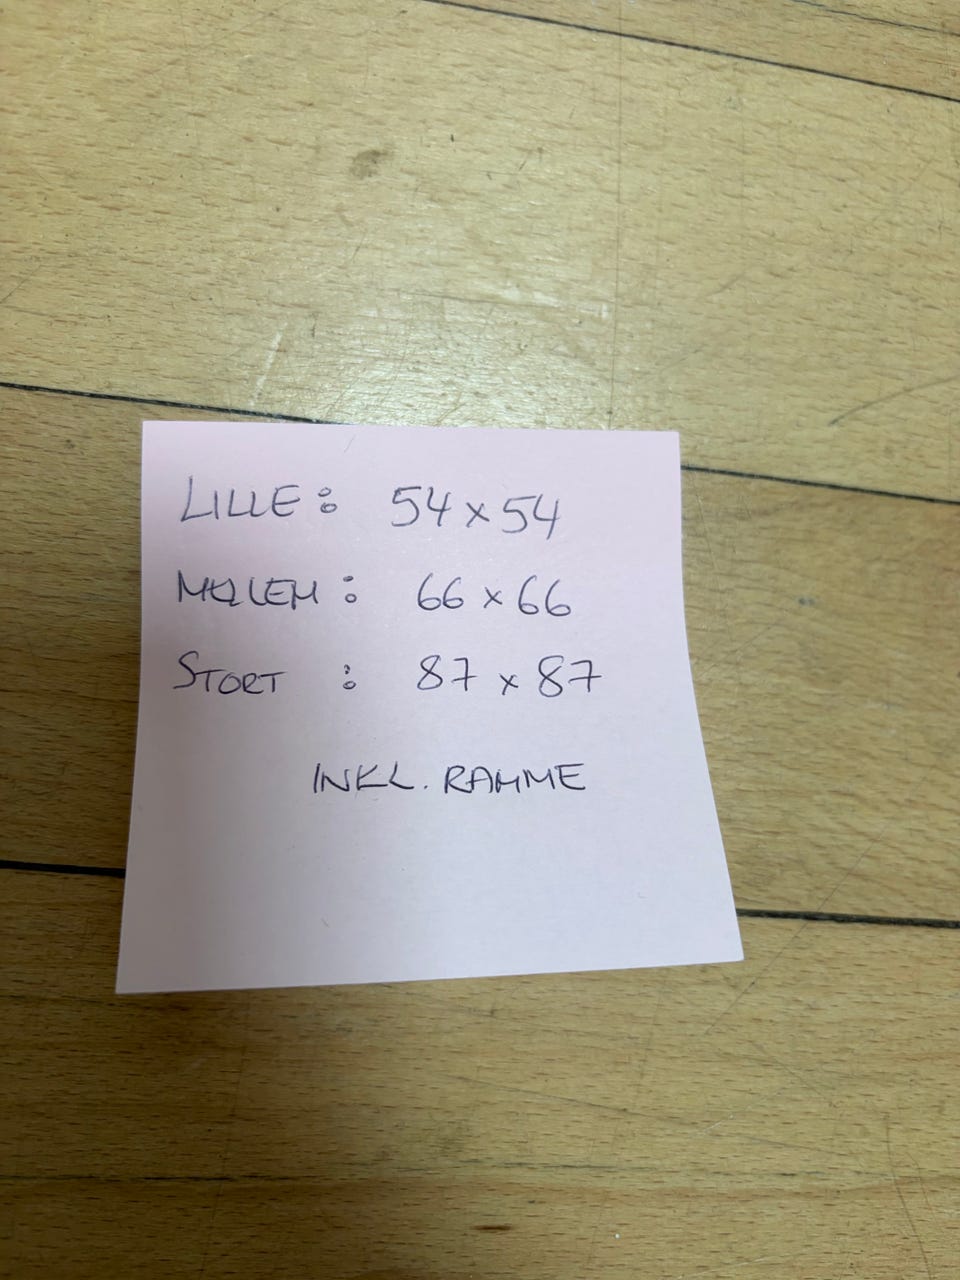 LILLE: 54x54
MELLEM: 66x66
STORT: 87x87
INKL. RAMME